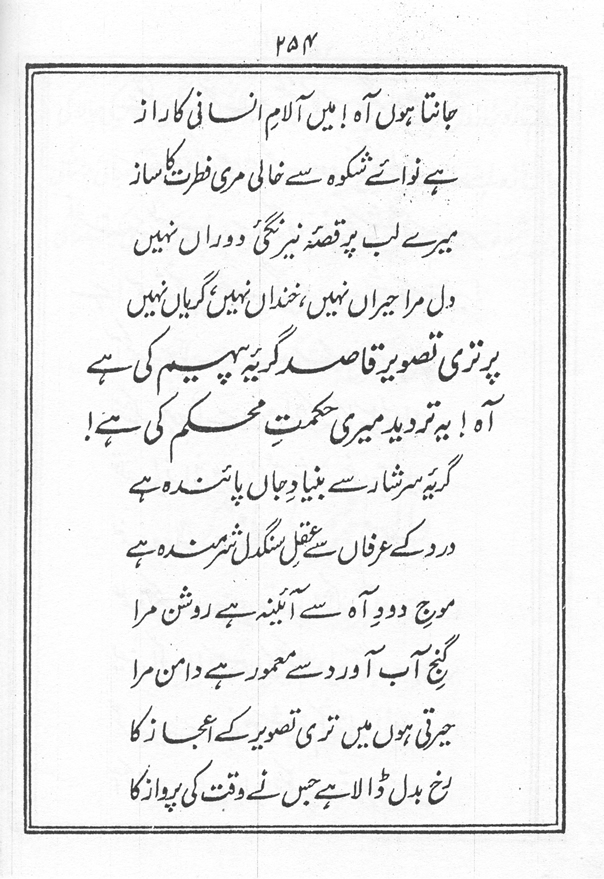 ۲۵۴
جانتا ہوں آہ! میں آلامِ انسانی کا راز
ہے نوائے شکوہ سے خالی مری فطرت کا ساز
میرے لب پر قصۂ نیرنگیٔ دوراں نہیں
دل مرا حیراں نہیں، خنداں نہیں، گریاں نہیں
پر تری تصویر قاصد گریۂ پیہم کی ہے
آہ! یہ تردید میری حکمتِ محکم کی ہے!
گریۂ سرشار سے بنیادِ جاں پائندہ ہے
درد کے عرفاں سے عقلِ سنگدل شرمندہ ہے
موجِ دودِ آہ سے آئینہ ہے روشن مرا
گنجِ آب آورد سے معمور ہے دامن مرا
حیرتی ہوں میں تری تصویر کے اعجاز کا
رخ بدل ڈالا ہے جس نے وقت کی پرواز کا